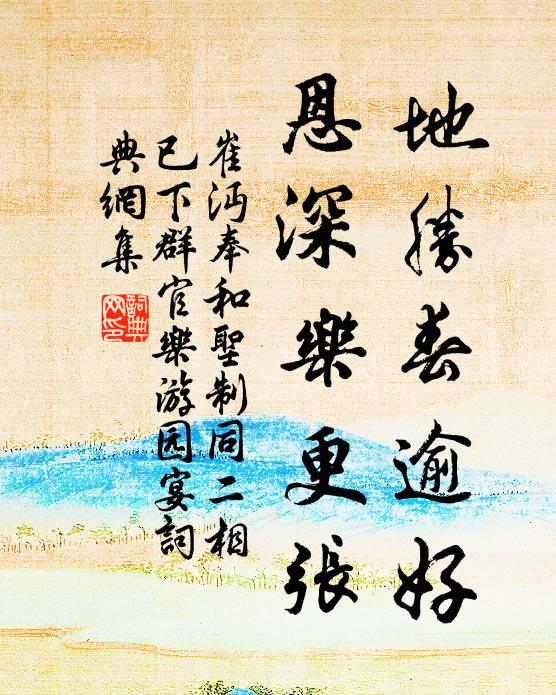 地勝春逾好
恩深樂更張
崔沔奉和聖制同二相
已下群官樂游园宴詞
典網集
詞典网印